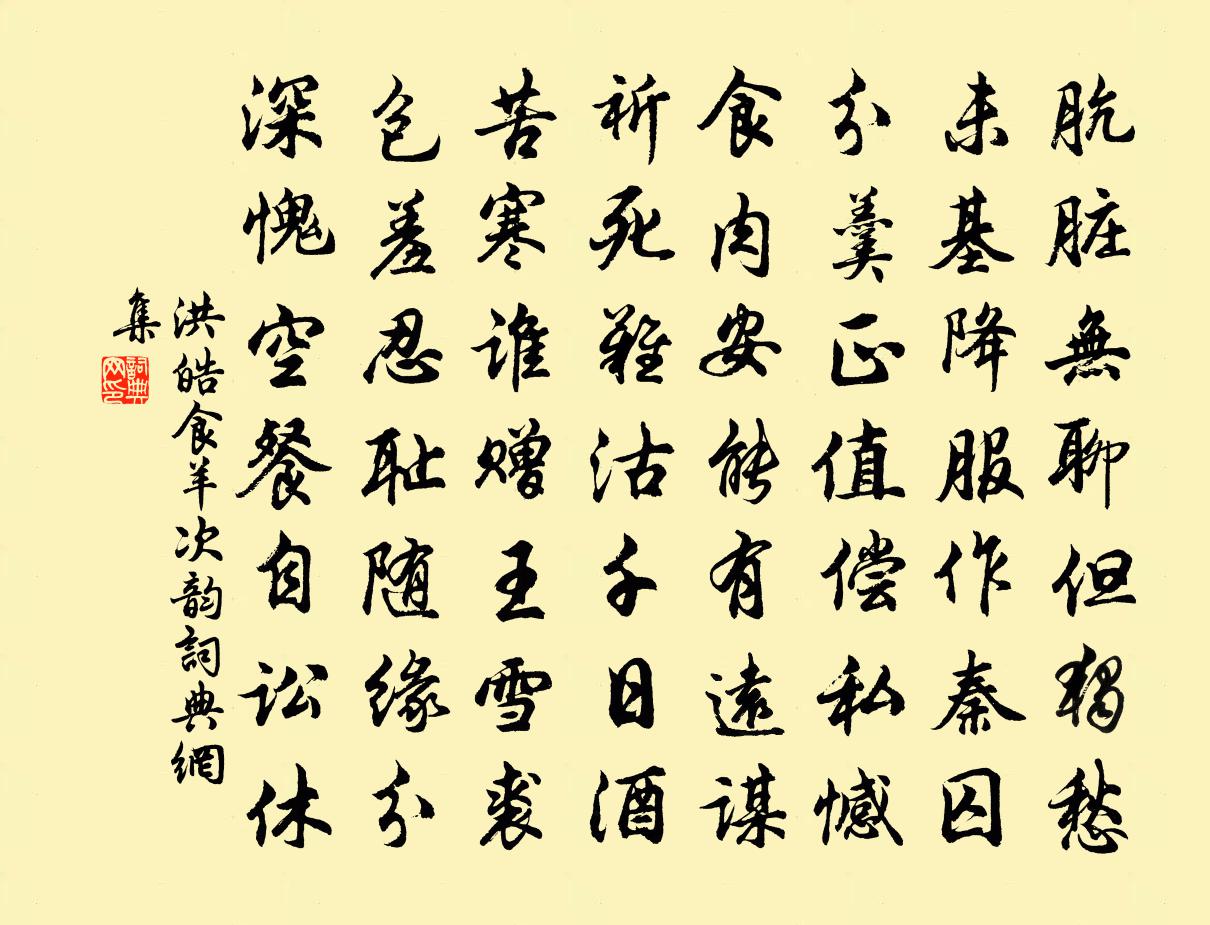 肮脏無聊但獨愁
未基降服作秦囚
分羹正值偿私憾
食肉安能有遠谋
祈死難沽千日酒
苦寒谁赠王雪裘
包羞忍耻随缘分
深愧空餐自讼休
洪皓食羊次韵詞典網
集
詞典网印